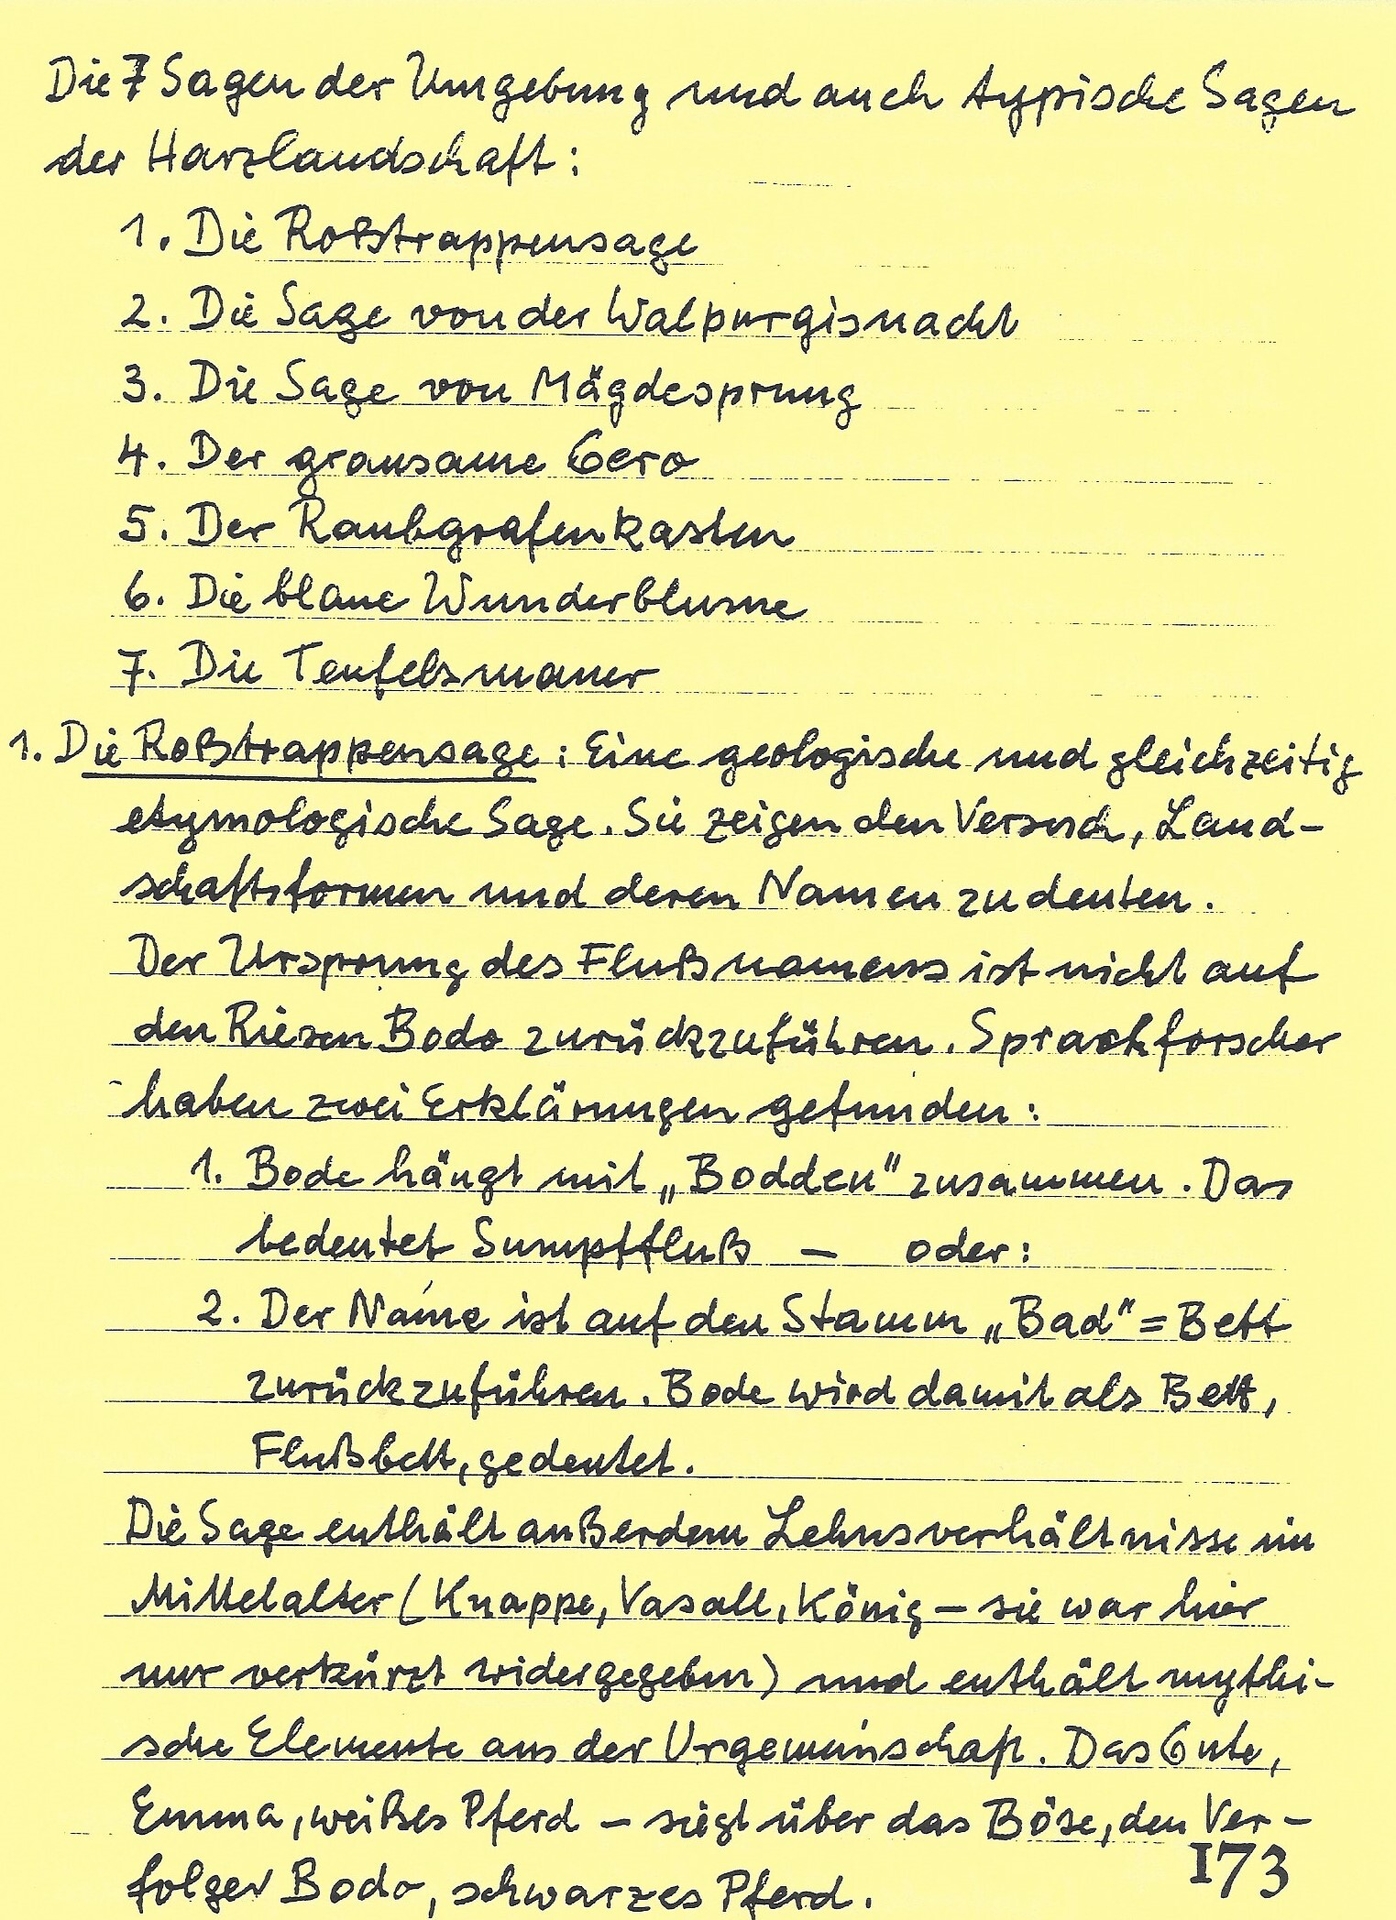 Die 7 Sagen der Umgebung und auch typische Sagen
der Harzlandschaft:
1. Die Roßtrappensage
2. Die Sage von der Walpurgisnacht
3. Die Sage von Mägdesprung
4. Der grausame Gero
5. Der Raubgrafenkasten
6. Die blaue Wunderblume
7. Die Teufelsmauer
1. Die Roßtrappensage: Eine geologische und gleichzeitig
etymologische Sage. Sie zeigen den Versuch, Land-
schaftsformen und deren Namen zu deuten.
Der Ursprung des Flußnamens ist nicht auf
den Riesen Bodo zurückzuführen. Sprachforscher
haben zwei Erklärungen gefunden:
1. Bode hängt mit „Bodden" zusammen. Das
bedeutet Sumpffluß – oder:
2. Der Name ist auf den Stamm „Bad" = Bett
zurückzuführen. Bode wird damit als Bett,
Flußbett, gedeutet.
Die Sage enthält außerdem Lehnsverhältnisse im
Mittelalter (Knappe, Vasall, König – sie war hier
nur verkürzt widergegeben) und enthält mythi-
sche Elemente aus der Urgemeinschaft. Das Gute,
Emma, weißes Pferd – siegt über das Böse, den Ver-
folger Bodo, schwarzes Pferd.
173